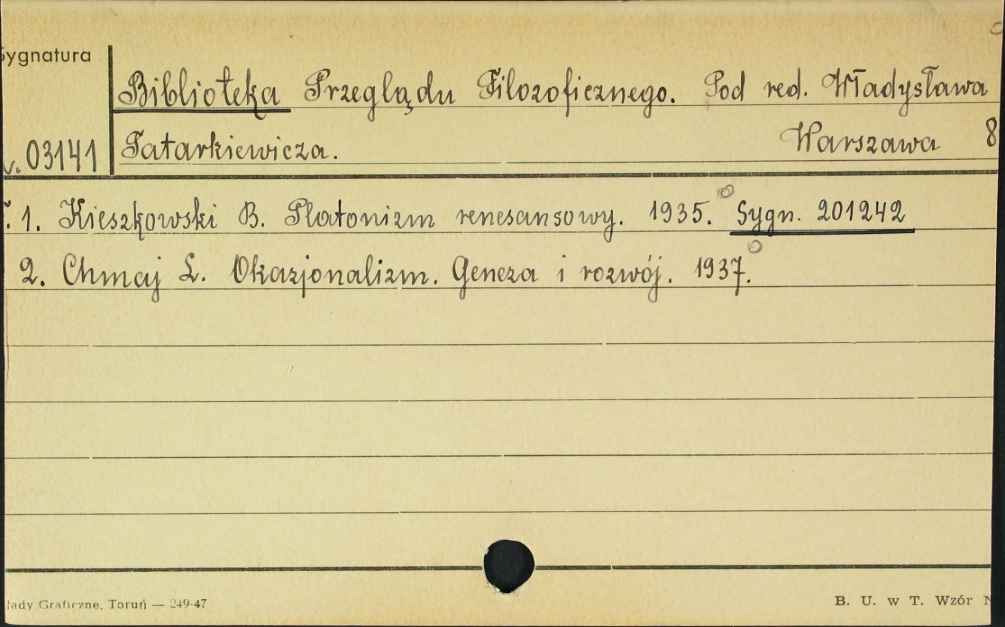 Sygnatura
Biblioteka Przeglądu Filozoficznego. Pod red. Władysława
03141 Tatarkiewicza. Warszawa 8
1. Kieszkowski B. Platonizm renesansowy. 1935. Sygn. 201242
2. Chmaj L. Okazjonalizm. Geneza i rozwój. 1937.
łady Graficzne, Toruń — 249-47 B. U. w T. Wzór N